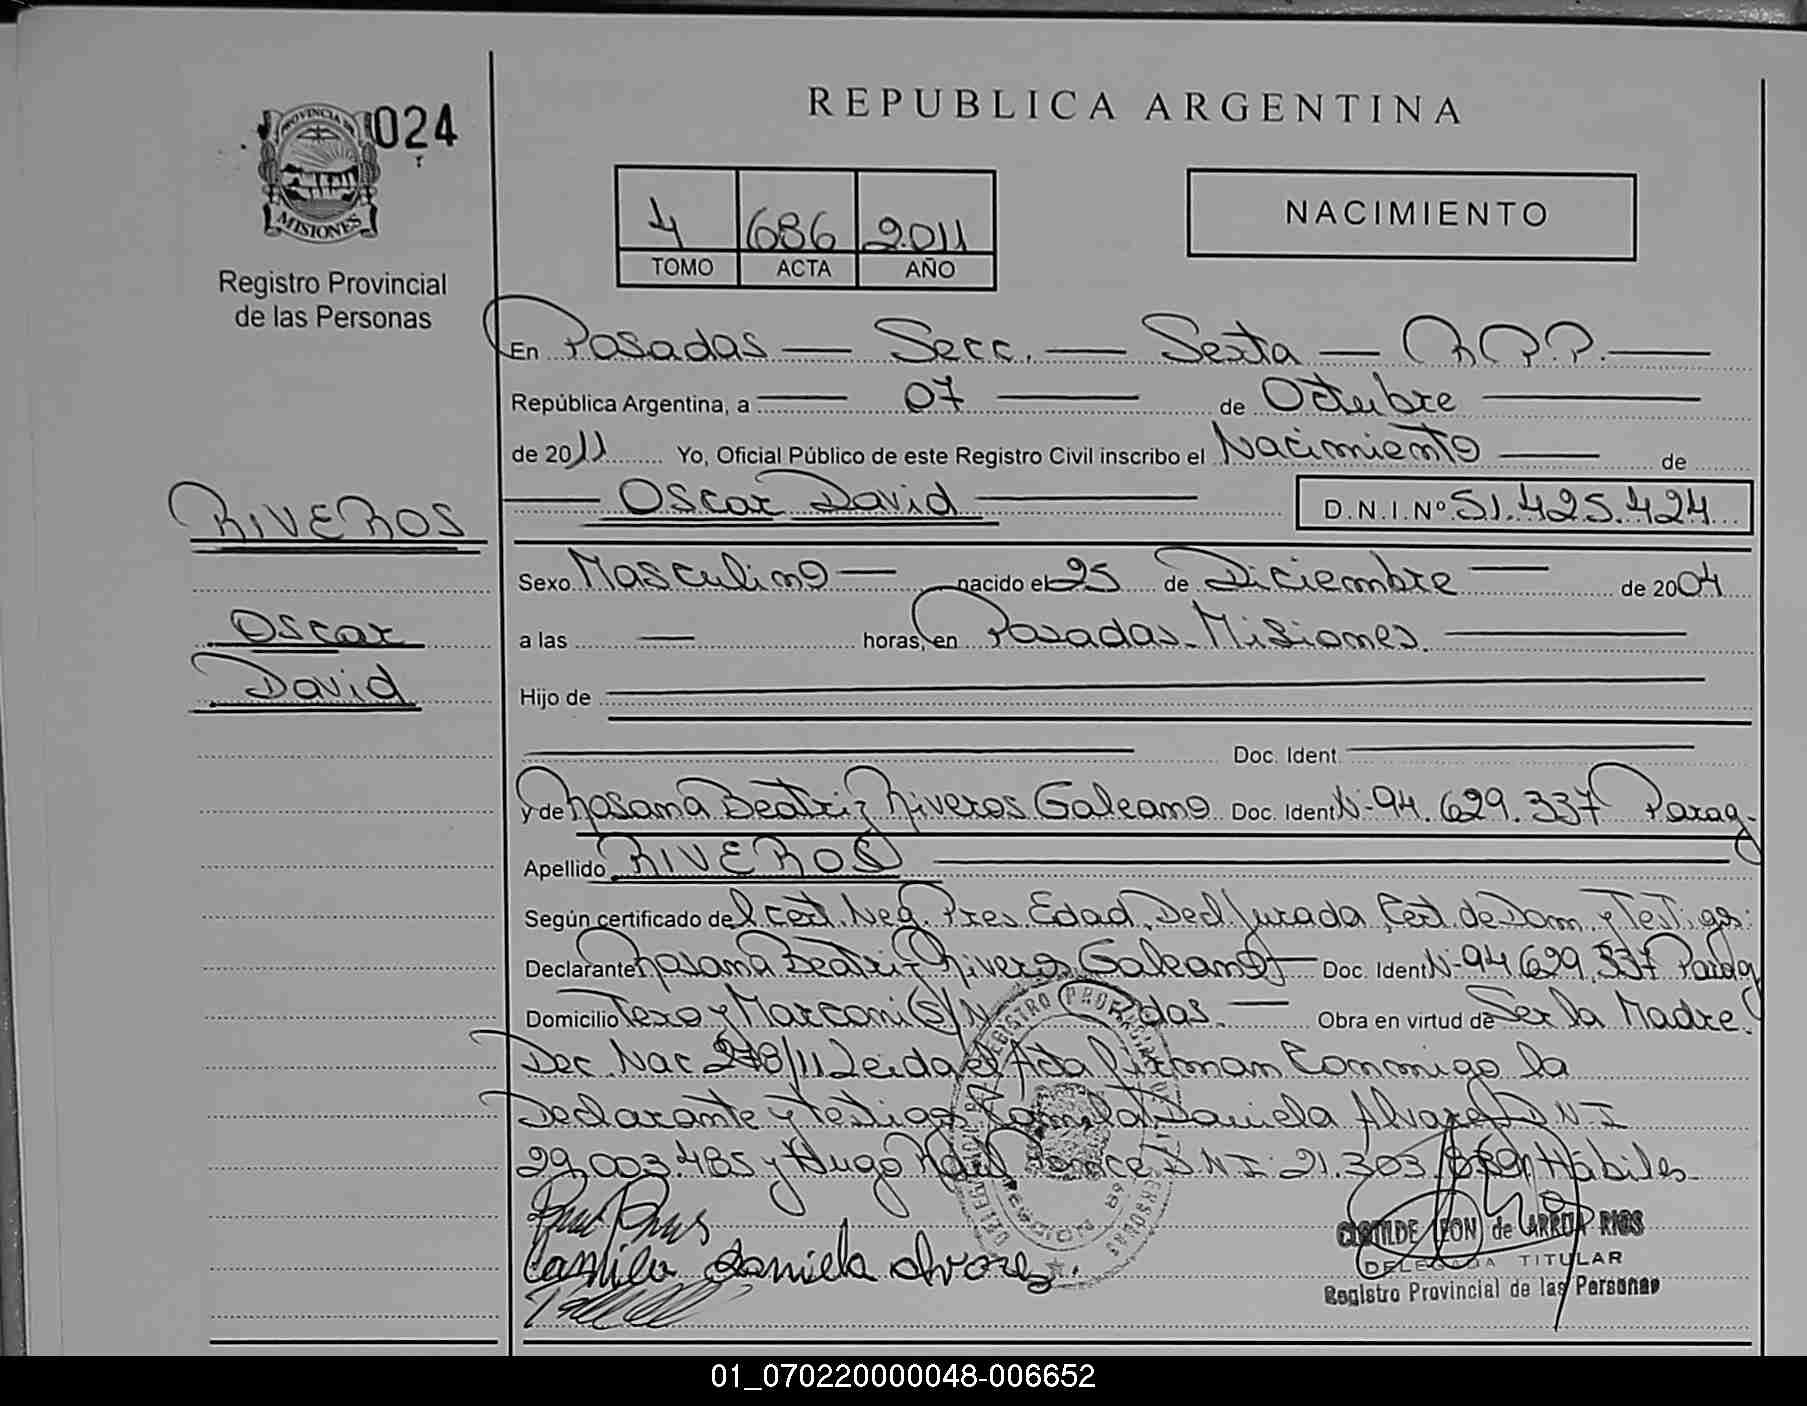 024
PROVINCIA DE
MISIONES
Registro Provincial
de las Personas
REPUBLICA ARGENTINA
4 686 2011
TOMO ACTA AÑO
NACIMIENTO
En Posadas — Secc. — Sexta — R.P.P. —
República Argentina, a — 07 — de Octubre —
de 2011 Yo, Oficial Público de este Registro Civil inscribo el Nacimiento — de
— Oscar David — D.N.I.Nº 51.425.424
RIVEROS
Oscar
David
Sexo Masculino — nacido el 25 de Diciembre — de 2004
a las — horas, en Posadas - Misiones. —
Hijo de —
— Doc. Ident —
y de Rosana Beatriz Riveros Galeano Doc. Ident Nº 94.629.337 Parag.
Apellido RIVEROS —
Según certificado de l cert. Neg. Pres. Edad, Decl. Jurada, Cert. de Dom. y Testigos
Declarante Rosana Beatriz Riveros Galeano — Doc. Ident Nº 94.629.337 Parag
Domicilio Tero y Marconi S/N Posadas. — Obra en virtud de Ser la Madre.
Dec. Nac 278/11 Leida el Acta firman Conmigo la
Declarante y testigos Camila Daniela Alvarez D.N.I
29.003.485 y Hugo Raul Ponce D.N.I. 21.303 Hábiles
Camila Daniela Alvarez.
CLOTILDE LEON de ARRUA RIOS
DELEGADA TITULAR
Registro Provincial de las Personas
01_070220000048-006652